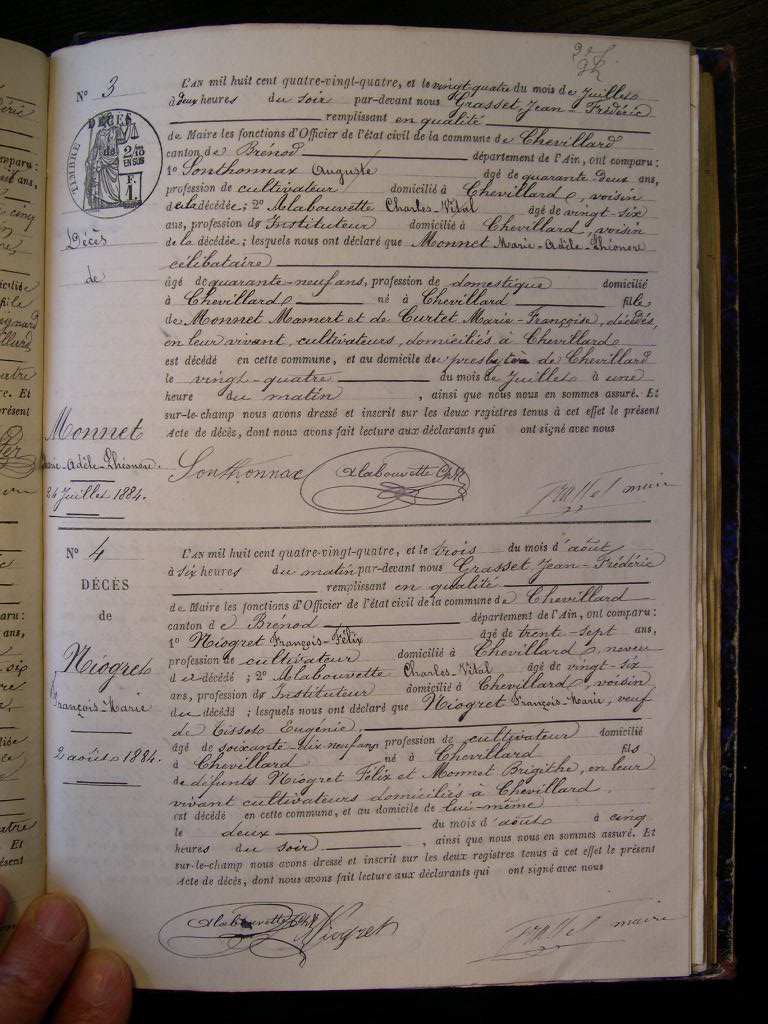 Nº 3
TIMBRE
DÉCÈS
de
2/10 EN SUS
F. 1.
Décès
de
Monnet
Marie-Adèle-Lhéonore
24 Juillet 1884.
L'AN mil huit cent quatre-vingt-quatre, et le vingt quatre du mois de Juillet
à deux heures du soir par-devant nous Grasset, Jean-Frédéric
remplissant en qualité
de Maire les fonctions d'Officier de l'état civil de la commune de Chevillard
canton de Brénod département de l'Ain, ont comparu :
1º Sonthonnax Auguste âgé de quarante-deux ans,
profession de cultivateur domicilié à Chevillard, voisin
de la décédée ; 2º Alabouvette Charles-Vital âgé de vingt-six
ans, profession d' Instituteur domicilié à Chevillard, voisin
de la décédée ; lesquels nous ont déclaré que Monnet Marie-Adèle-Lhéonore
célibataire
âgé de quarante-neuf ans, profession de domestique domicilié
à Chevillard né à Chevillard fille
de Monnet Mamert et de Curtet Marie-Françoise, décédés,
en leur vivant, cultivateurs, domiciliés à Chevillard
est décédé en cette commune, et au domicile du presbytère de Chevillard
le vingt-quatre du mois de Juillet à une
heure du matin , ainsi que nous nous en sommes assuré. Et
sur-le-champ nous avons dressé et inscrit sur les deux registres tenus à cet effet le présent
Acte de décès, dont nous avons fait lecture aux déclarants qui ont signé avec nous
Sonthonnax Alabouvette Ch. V. Grasset maire
Nº 4
DÉCÈS
de
Niogret
François-Marie
2 août 1884.
L'AN mil huit cent quatre-vingt-quatre, et le trois du mois d'août
à six heures du matin par-devant nous Grasset, Jean-Frédéric
remplissant en qualité
de Maire les fonctions d'Officier de l'état civil de la commune de Chevillard
canton de Brénod département de l'Ain, ont comparu :
1º Niogret François-Félix âgé de trente-sept ans,
profession de cultivateur domicilié à Chevillard, neveu
du décédé ; 2º Alabouvette Charles-Vital âgé de vingt-six
ans, profession d' Instituteur domicilié à Chevillard, voisin
du décédé ; lesquels nous ont déclaré que Niogret François-Marie, veuf
de Tissot Eugénie,
âgé de soixante-dix neuf ans, profession de cultivateur domicilié
à Chevillard né à Chevillard fils
de défunts Niogret Félix et Monnet Brigithe, en leur
vivant cultivateurs domiciliés à Chevillard.
est décédé en cette commune, et au domicile de lui-même
le deux du mois d'août à cinq
heures du soir , ainsi que nous nous en sommes assuré. Et
sur-le-champ nous avons dressé et inscrit sur les deux registres tenus à cet effet le présent
Acte de décès, dont nous avons fait lecture aux déclarants qui ont signé avec nous
Alabouvette Ch. V. Niogret Grasset maire